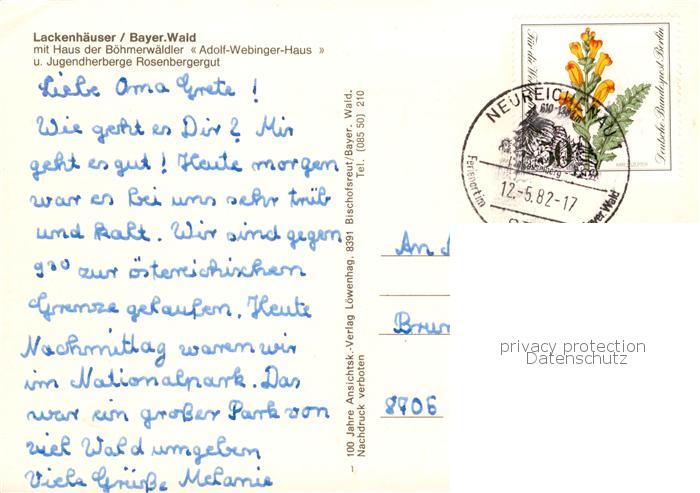 Lackenhäuser / Bayer.Wald
mit Haus der Böhmerwäldler « Adolf-Webinger-Haus »
u. Jugendherberge Rosenbergergut
Liebe Oma Grete !
Wie geht es Dir? Mir
geht es gut! Heute morgen
war es bei uns sehr trüb
und kalt. Wir sind gegen
9³⁰ zur österreichischen
Grenze gelaufen. Heute
Nachmittag waren wir
im Nationalpark. Das
war ein großer Park von
viel Wald umgeben
Viele Grüße Melanie
100 Jahre Ansichtsk.-Verlag Löwenhag, 8391 Bischofsreut/Bayer. Wald.
Tel. (085 50) 210
Nachdruck verboten
1
Deutsche Bundespost Berlin
NEUREICHENAU
12.-5.82-17
Wald
An
Brun
8706
privacy protection
Datenschutz